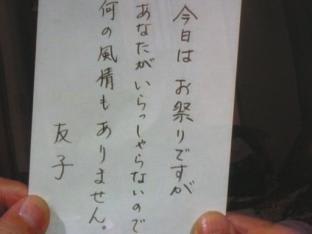 今日はお祭りですが
あなたがいらっしゃらないので
何の風情もありません。
友子